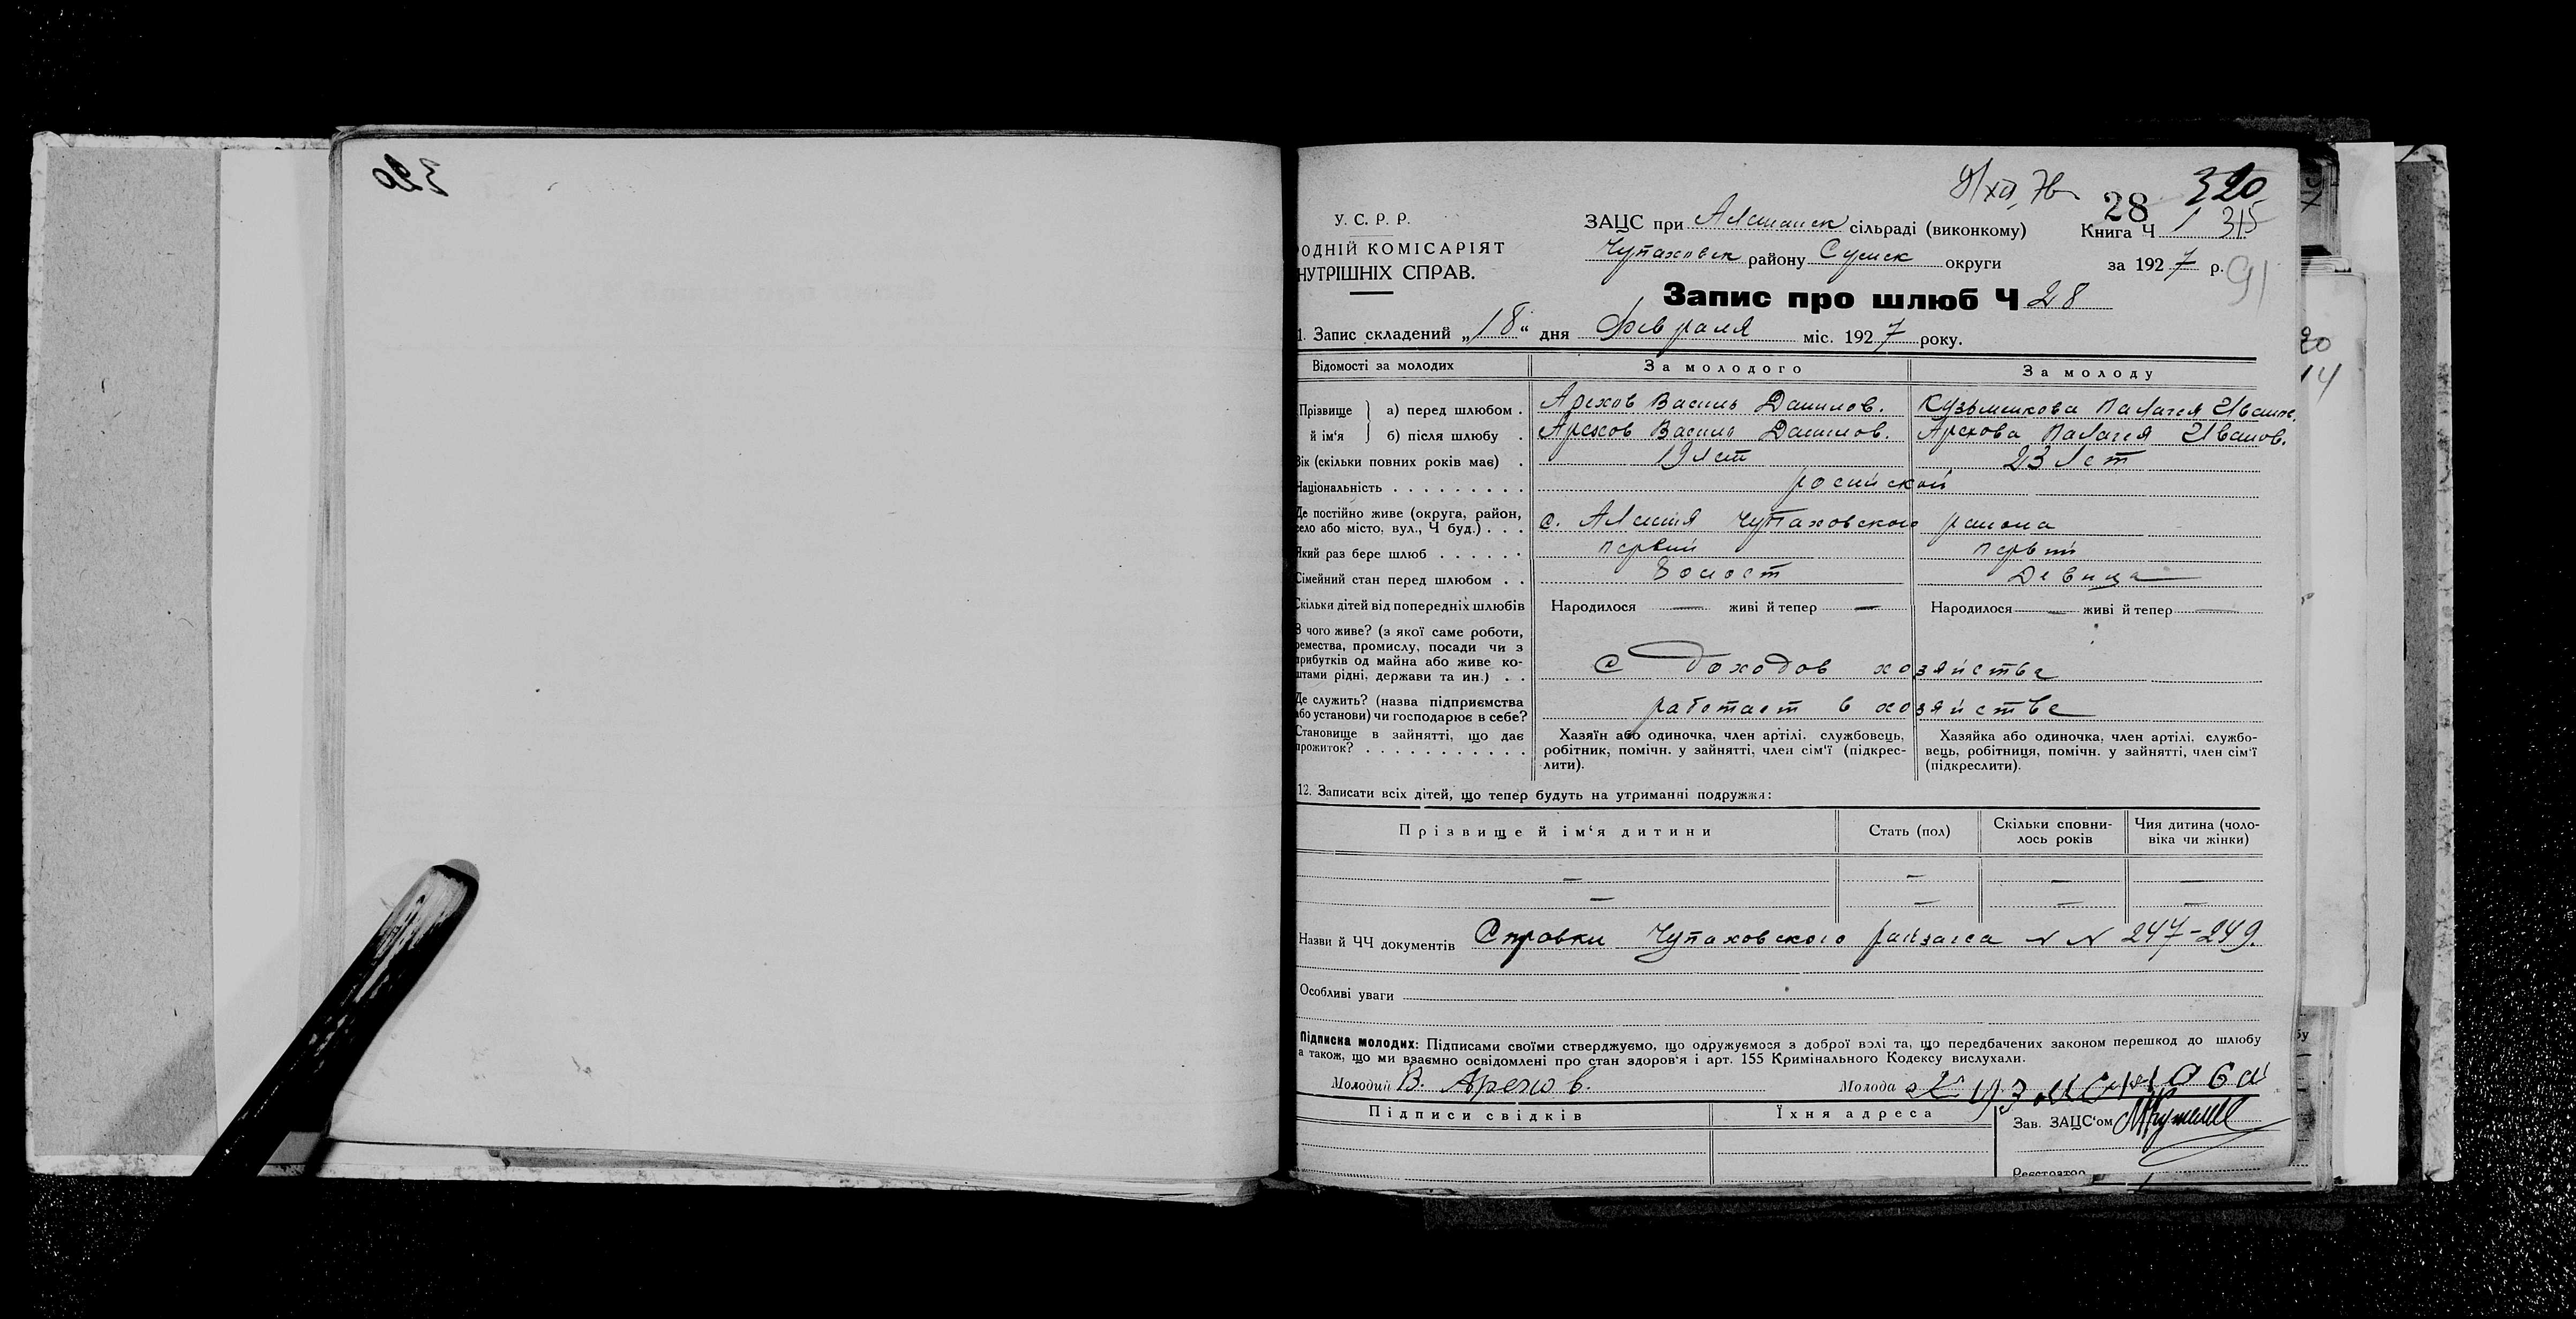 320
28 320
У. С. Р. Р.
ЗАЦС при Алешанск сільраді (виконкому) Книга Ч 1 315
ОДНІЙ КОМІСАРІЯТ
Чупаховск району Сумск округи за 1927 р. 91
НУТРІШНІХ СПРАВ.
Запис про шлюб Ч 28
1. Запис складений „18“ дня Февраля міс. 1927 року.
Відомості за молодих За молодого За молоду
Прізвище й ім'я а) перед шлюбом . Арехов Василь Данилов. Кузьменкова Палагея Иванов.
б) після шлюбу . Арехов Василь Данилов. Арехова Палагея Иванов.
Вік (скільки повних років має) . 19 лет 23 лет
Національність . . . . . . . . . росийской
Де постійно живе (округа, район,
село або місто, вул., Ч буд.) . . . с. Алешня Чупаховского раиона
Який раз бере шлюб . . . . . . первый первый
Сімейний стан перед шлюбом . . холост Девица
Скільки дітей від попередніх шлюбів Народилося — живі й тепер — Народилося — живі й тепер —
З чого живе? (з якої саме роботи,
ремества, промислу, посади чи з
прибутків од майна або живе ко-
штами рідні, держави та ин.) . . С доходов хозяйства
Де служить? (назва підприємства
або установи) чи господарює в себе? работает в хозяйстве
Становище в зайнятті, що дає
прожиток? . . . . . . . . . . .
Хазяїн або одиночка, член артілі, службовець,
робітник, помічн. у зайнятті, член сім'ї (підкрес-
лити).
Хазяйка або одиночка, член артілі, службо-
вець, робітниця, помічн. у зайнятті, член сім'ї
(підкреслити).
12. Записати всіх дітей, що тепер будуть на утриманні подружжя:
Прізвище й ім'я дитини Стать (пол) Скільки сповни-
лось років Чия дитина (чоло-
віка чи жінки)
— — — —
— — — —
Назви й ЧЧ документів Справки Чупаховского райзагса N N 247-249.
Особливі уваги
Підписка молодих: Підписами своїми стверджуємо, що одружуємося з доброї волі та, що передбачених законом перешкод до шлюбу
а також, що ми взаємно освідомлені про стан здоров'я і арт. 155 Кримінального Кодексу вислухали.
Молодий В. Арехов. Молода
Підписи свідків Їхня адреса Зав. ЗАЦС'ом
Реєстратор
20
14